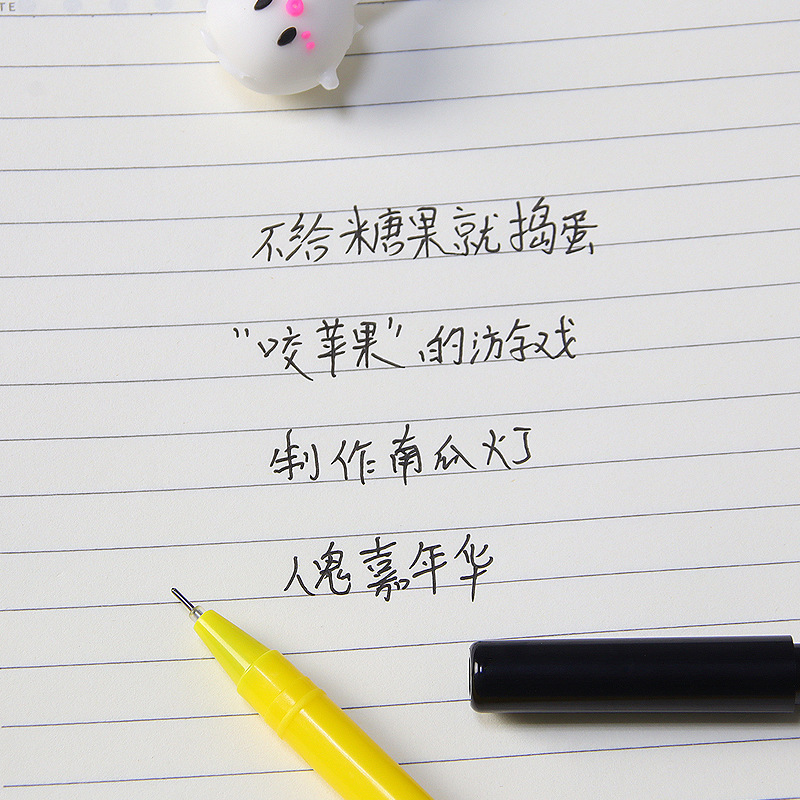 TE
不给糖果就捣蛋
“咬苹果”的游戏
制作南瓜灯
人鬼嘉年华